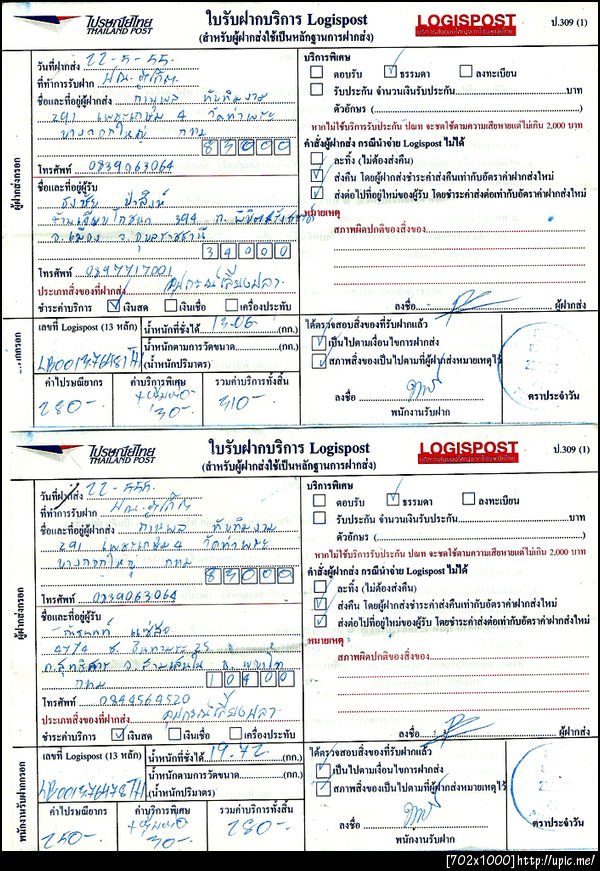 ไปรษณีย์ไทย
THAILAND POST
ใบรับฝากบริการ Logispost
(สำหรับผู้ฝากส่งใช้เป็นหลักฐานการฝากส่ง)
LOGISPOST
ป.309 (1)
วันที่ฝากส่ง 22-5-55.
ที่ทำการรับฝาก
ชื่อและที่อยู่ผู้ฝากส่ง
291 เพชรเกษม 4 วัดท่าพระ
บางกอกใหญ่ กทม
83000
โทรศัพท์ 0839063064
ชื่อและที่อยู่ผู้รับ
ธงชัย
394
อ.เมือง จ.อุบลราชธานี
34000
โทรศัพท์ 0897717001
ประเภทสิ่งของที่ฝากส่ง อุปกรณ์เลี้ยงปลา
ชำระค่าบริการ เงินสด เงินเชื่อ เครื่องประทับ
ผู้ฝากส่งกรอก
บริการพิเศษ
ตอบรับ ธรรมดา ลงทะเบียน
รับประกัน จำนวนเงินรับประกัน บาท
ตัวอักษร ( )
หากไม่ใช้บริการรับประกัน ปณท จะชดใช้ตามความเสียหายแต่ไม่เกิน 2,000 บาท
คำสั่งผู้ฝากส่ง กรณีนำจ่าย Logispost ไม่ได้
ละทิ้ง (ไม่ต้องส่งคืน)
ส่งคืน โดยผู้ฝากส่งชำระค่าส่งคืนเท่ากับอัตราค่าฝากส่งใหม่
ส่งต่อไปที่อยู่ใหม่ของผู้รับ โดยชำระค่าส่งต่อเท่ากับอัตราค่าฝากส่งใหม่
หมายเหตุ
สภาพผิดปกติของสิ่งของ
ลงชื่อ ผู้ฝากส่ง
เลขที่ Logispost (13 หลัก)
LB001376481TH
น้ำหนักที่ชั่งได้ 13.06 (กก.)
น้ำหนักตามการวัดขนาด (กก.)
(น้ำหนักปริมาตร)
ค่าไปรษณียากร ค่าบริการพิเศษ รวมค่าบริการทั้งสิ้น
280- 30- 310-
ได้ตรวจสอบสิ่งของที่รับฝากแล้ว
เป็นไปตามเงื่อนไขการฝากส่ง
สภาพสิ่งของเป็นไปตามที่ผู้ฝากส่งหมายเหตุไว้
ลงชื่อ
พนักงานรับฝาก
ตราประจำวัน
ไปรษณีย์ไทย
THAILAND POST
ใบรับฝากบริการ Logispost
(สำหรับผู้ฝากส่งใช้เป็นหลักฐานการฝากส่ง)
LOGISPOST
ป.309 (1)
วันที่ฝากส่ง 22-555.
ที่ทำการรับฝาก
ชื่อและที่อยู่ผู้ฝากส่ง
291 เพชรเกษม 4 วัดท่าพระ
บางกอกใหญ่ กทม
83000
โทรศัพท์ 0839063064
ชื่อและที่อยู่ผู้รับ
กทม 10400
โทรศัพท์ 0844564520
ประเภทสิ่งของที่ฝากส่ง อุปกรณ์เลี้ยงปลา
ชำระค่าบริการ เงินสด เงินเชื่อ เครื่องประทับ
ผู้ฝากส่งกรอก
บริการพิเศษ
ตอบรับ ธรรมดา ลงทะเบียน
รับประกัน จำนวนเงินรับประกัน บาท
ตัวอักษร ( )
หากไม่ใช้บริการรับประกัน ปณท จะชดใช้ตามความเสียหายแต่ไม่เกิน 2,000 บาท
คำสั่งผู้ฝากส่ง กรณีนำจ่าย Logispost ไม่ได้
ละทิ้ง (ไม่ต้องส่งคืน)
ส่งคืน โดยผู้ฝากส่งชำระค่าส่งคืนเท่ากับอัตราค่าฝากส่งใหม่
ส่งต่อไปที่อยู่ใหม่ของผู้รับ โดยชำระค่าส่งต่อเท่ากับอัตราค่าฝากส่งใหม่
หมายเหตุ
สภาพผิดปกติของสิ่งของ
ลงชื่อ ผู้ฝากส่ง
เลขที่ Logispost (13 หลัก)
LB001376478TH
น้ำหนักที่ชั่งได้ 19.72 (กก.)
น้ำหนักตามการวัดขนาด (กก.)
(น้ำหนักปริมาตร)
ค่าไปรษณียากร ค่าบริการพิเศษ รวมค่าบริการทั้งสิ้น
250- 30- 280-
พนักงานรับฝากกรอก
ได้ตรวจสอบสิ่งของที่รับฝากแล้ว
เป็นไปตามเงื่อนไขการฝากส่ง
สภาพสิ่งของเป็นไปตามที่ผู้ฝากส่งหมายเหตุไว้
ลงชื่อ
พนักงานรับฝาก
ตราประจำวัน
[702x1000]http://upic.me/